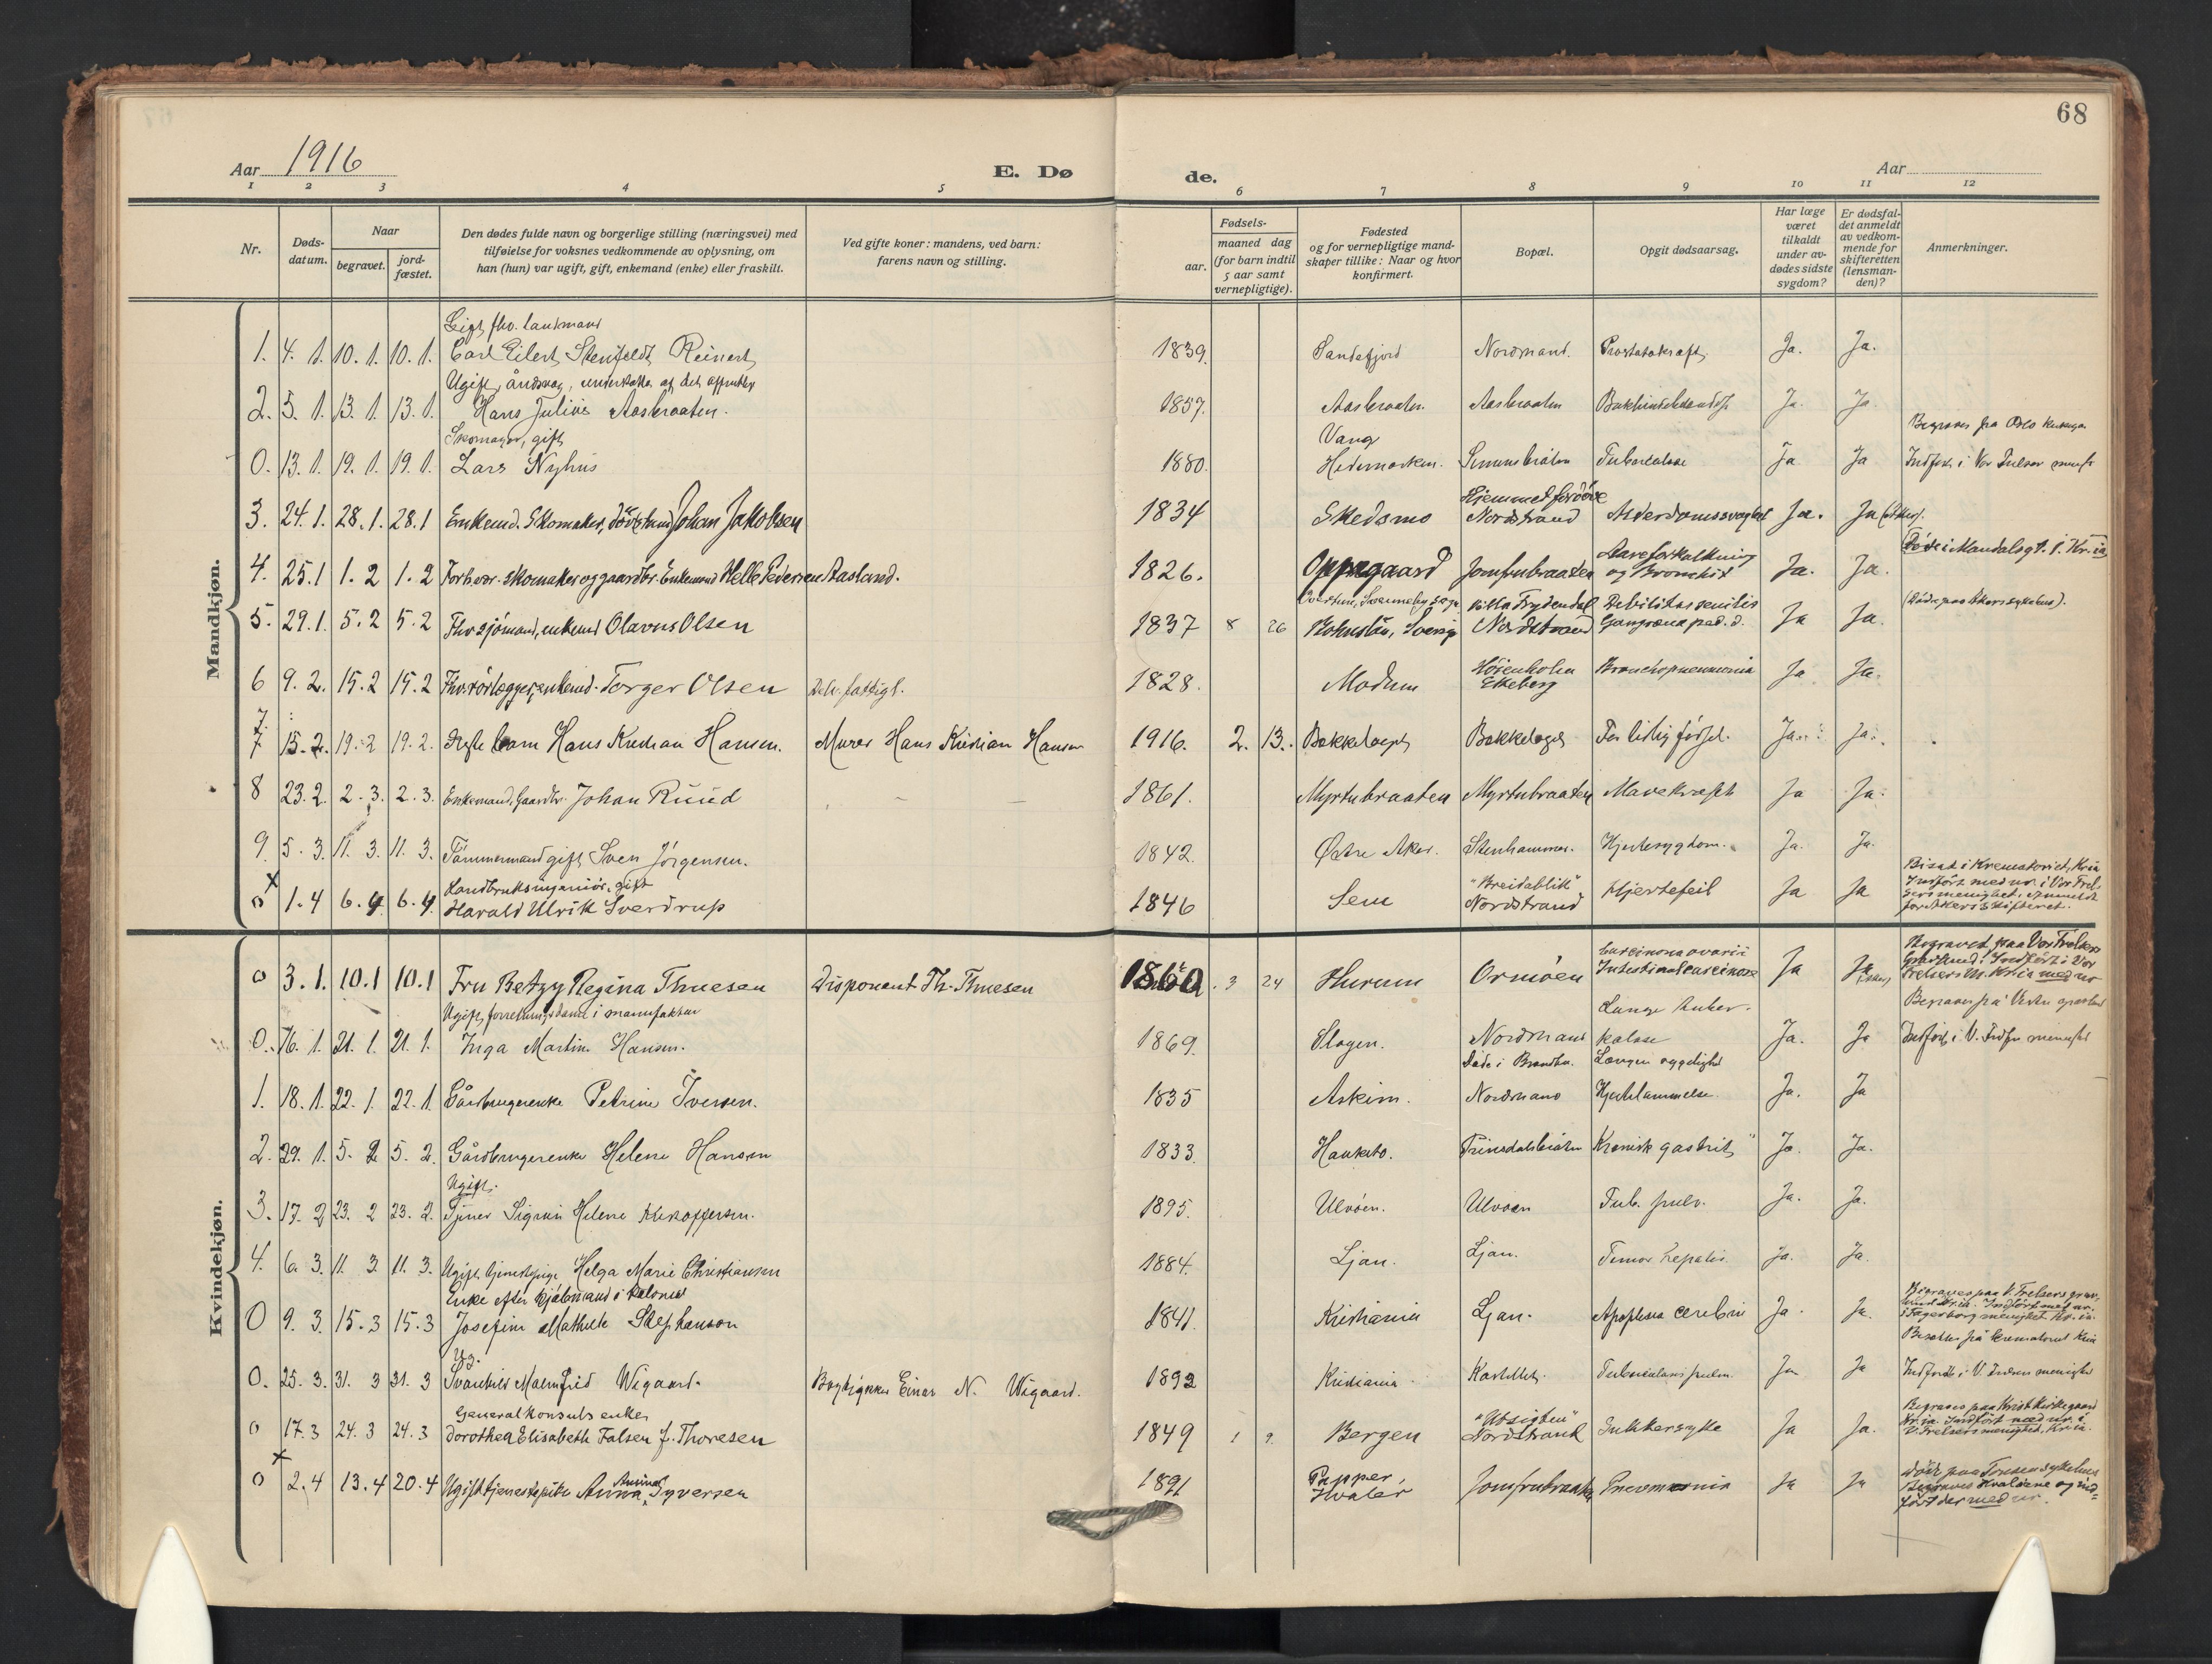 68
Aar 1916
E. Dø
de.
Aar
1 2 3 4 5 6 7 8 9 10 11 12
Nr.
Døds-
datum.
Naar
begravet.
jord-
fæstet.
Den dødes fulde navn og borgerlige stilling (næringsvei) med
tilføielse for voksnes vedkommende av oplysning, om
han (hun) var ugift, gift, enkemand (enke) eller fraskilt.
Ved gifte koner: mandens, ved barn:
farens navn og stilling.
Fødsels-
aar.
maaned dag
(for barn indtil
5 aar samt
vernepligtige).
Fødested
og for vernepligtige mand-
skaper tillike: Naar og hvor
konfirmert.
Bopæl.
Opgit dødsaarsag.
Har læge
været
tilkaldt
under av-
dødes sidste
sygdom?
Er dødsfal-
det anmeldt
av vedkom-
mende for
skifteretten
(lensman-
den)?
Anmerkninger.
Mandkjøn.
Gift, fhv. landmand
1. 4. 1. 10. 1. 10. 1. Carl Eilert Stenfeldt Reinert 1839. Sandefjord Nordstrand. Ja. Ja.
Ugift, åndssvag,
2. 5. 1. 13. 1. 13. 1. Hans Julius Aasbraaten. 1857. Aasbraaten. Aasbraaten Ja. Ja.
Skomager, gift Vang
0. 13. 1. 19. 1. 19. 1. Lars Nyhus 1880. Hedemarken. Tuberkulose Ja Ja
Hjemmet for døve
3. 24. 1. 28. 1. 28. 1 Enkemd. Skomaker, døvstum Johan Jakobsen 1834 Skedsmo Nordstrand Alderdomssvaghet Ja. Ja (Aker).
Aareforkalkning Døde i Mandalsgt. i Kr.ia
4. 25. 1 1. 2 1. 2 Forh.vær. skomaker og gaardbr. Enkemand Helle Pedersen Aasland. 1826. Oppegaard Jomfrubraaten og Bronchit Ja. Ja.
Villa Frydendal Debilitas senilis (Døde paa Akers sykehus).
5. 29. 1. 5. 2 5. 2 Fhv. sjömand, enkemd Olavus Olsen 1837 8 26 Bohuslän, Sverig Nordstrand Gangræna ped. d. Ja Ja.
Höienholm
6 9. 2. 15. 2 15. 2 Fhv. rörlegger, enkemd. Torger Olsen Delv. fattigl. 1828. Modum Ekeberg Bronchopneumonia Ja Ja.
7
7 15. 2. 19. 2 19. 2. barn Hans Kristian Hansen. Murer Hans Kristian Hansen 1916. 2. 13. Bakkeløget Bakkeløget For tidlig fødsel. Ja. Ja.
8 23. 2. 2. 3. 2. 3. Enkemand, Gaardbr. Johan Ruud 1861. Myrtubraaten Myrtubraaten Mavekræft Ja Ja.
9 5. 3. 11. 3. 11. 3. Tømmermand gift Sven Jørgensen. 1842. Østre Aker. Stenhammer. Hjertesygdom. Ja. Ja.
Landbruksingeniör, gift "Breidablik" Bisat i Krematoriet, Kria
0 1. 4 6. 4 6. 4. Harald Ulrik Sverdrup 1846 Sem Nordstrand Hjertefeil Ja Ja Indført med nr. i Vor Frel-
sers menighet.
Kvindekjøn.
Carcinoma ovarii Begravet paa Vor Frelsers
0 3. 1. 10. 1 10. 1 Fru Betzy Regina Thuesen Disponent Th. Thuesen 1860 3 24 Hurum Ormöen Intestinalcarcinose Ja Ja Gravlund. Indført i Vor
Frelsers M. Kr.ia med nr
Ugift, forretningsdame i manufaktur Lunge tuber-
0. 16. 1. 21. 1. 21. 1. Inga Martine Hansen. 1869. Slagen. Nordstrand kulose Ja. Ja Indført i V. Frelsers menighet
1. 18. 1. 22. 1. 22. 1. Gårdbrugerenke Petrine Iversen. 1835 Askim. Nordstrand Hjertelammelse. Ja. Ja
2. 29. 1. 5. 2 5. 2. Gårdbrugerenke Helene Hansen 1833. Hauketo. Prinsdalsbråten Kronisk gastrit Ja. Ja.
Ugift.
3. 17. 2 23. 2 23. 2. Tjener Sigrun Helene Kristoffersen. 1895. Ulvöen. Ulvöen Tub. pulm. Ja. Ja.
4. 6. 3. 11. 3 11. 3. Ugift tjenestepige Helga Marie Christiansen 1884. Ljan. Ljan. Tumor hepatis. Ja. Ja.
Enke efter
0 9. 3. 15. 3 15. 3 Josefine Mathilde Stephanson 1841. Kristiania Ljan. Apoplexia cerebri Ja. Ja. i Fagerborg menighet Kr.ia.
Ug.
0. 25. 3. 31. 3 31. 3 Svanhild Malmfrid Wigaard. Einar N. Wigaard. 1892 Kristiania. Kastellet. Ja Ja Indført i V. Frelsers menighet
Generalkonsuls enke "Utsigten" Begraves paa Krist Kirkegaard
0 17. 3 24. 3 24. 3 Dorothea Elisabeth Falsen f. Thoresen 1849 1 9. Bergen Nordstrand Sukkersyke Ja Ja. Kr.ia. Indført med nr. i
V. Frelsers menighet, Kr.ia.
Papper,
0 2. 4 13. 4 20. 4 Ugift tjenestepike Anna Syversen 1891 Hvaler Jomfrubraaten Pneumonia Ja Ja Begraves Hvalöerne og ind-
ført der med nr.